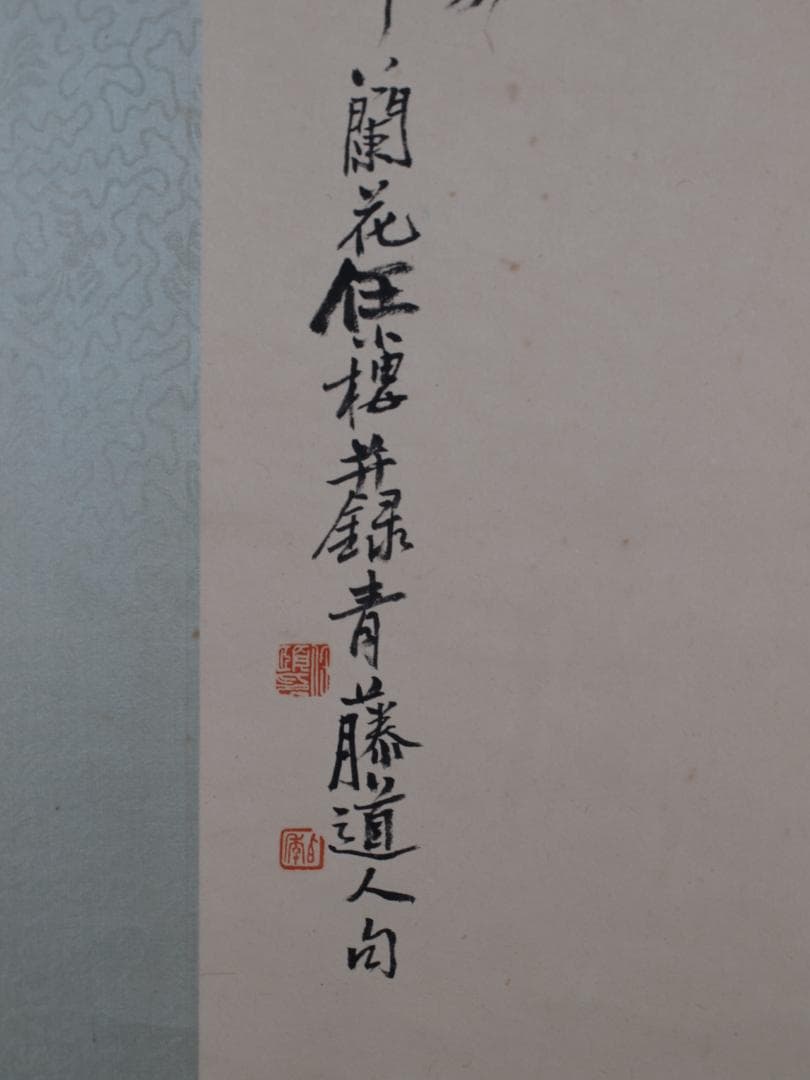 蘭花任小樓并錄青藤道人句